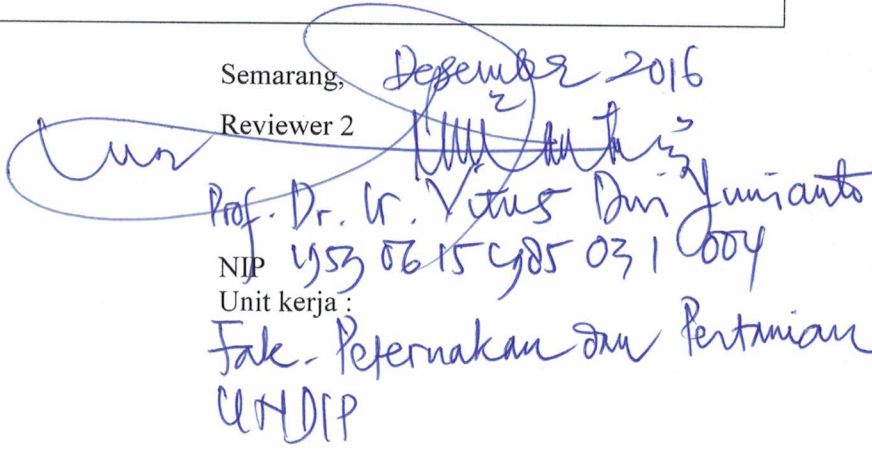 Semarang, Desember 2016
Reviewer 2
Prof. Dr. Ir. Vitus Dwi Yunianto
NIP 19530615 1985 03 1 004
Unit kerja :
Fak. Peternakan dan Pertanian
UNDIP